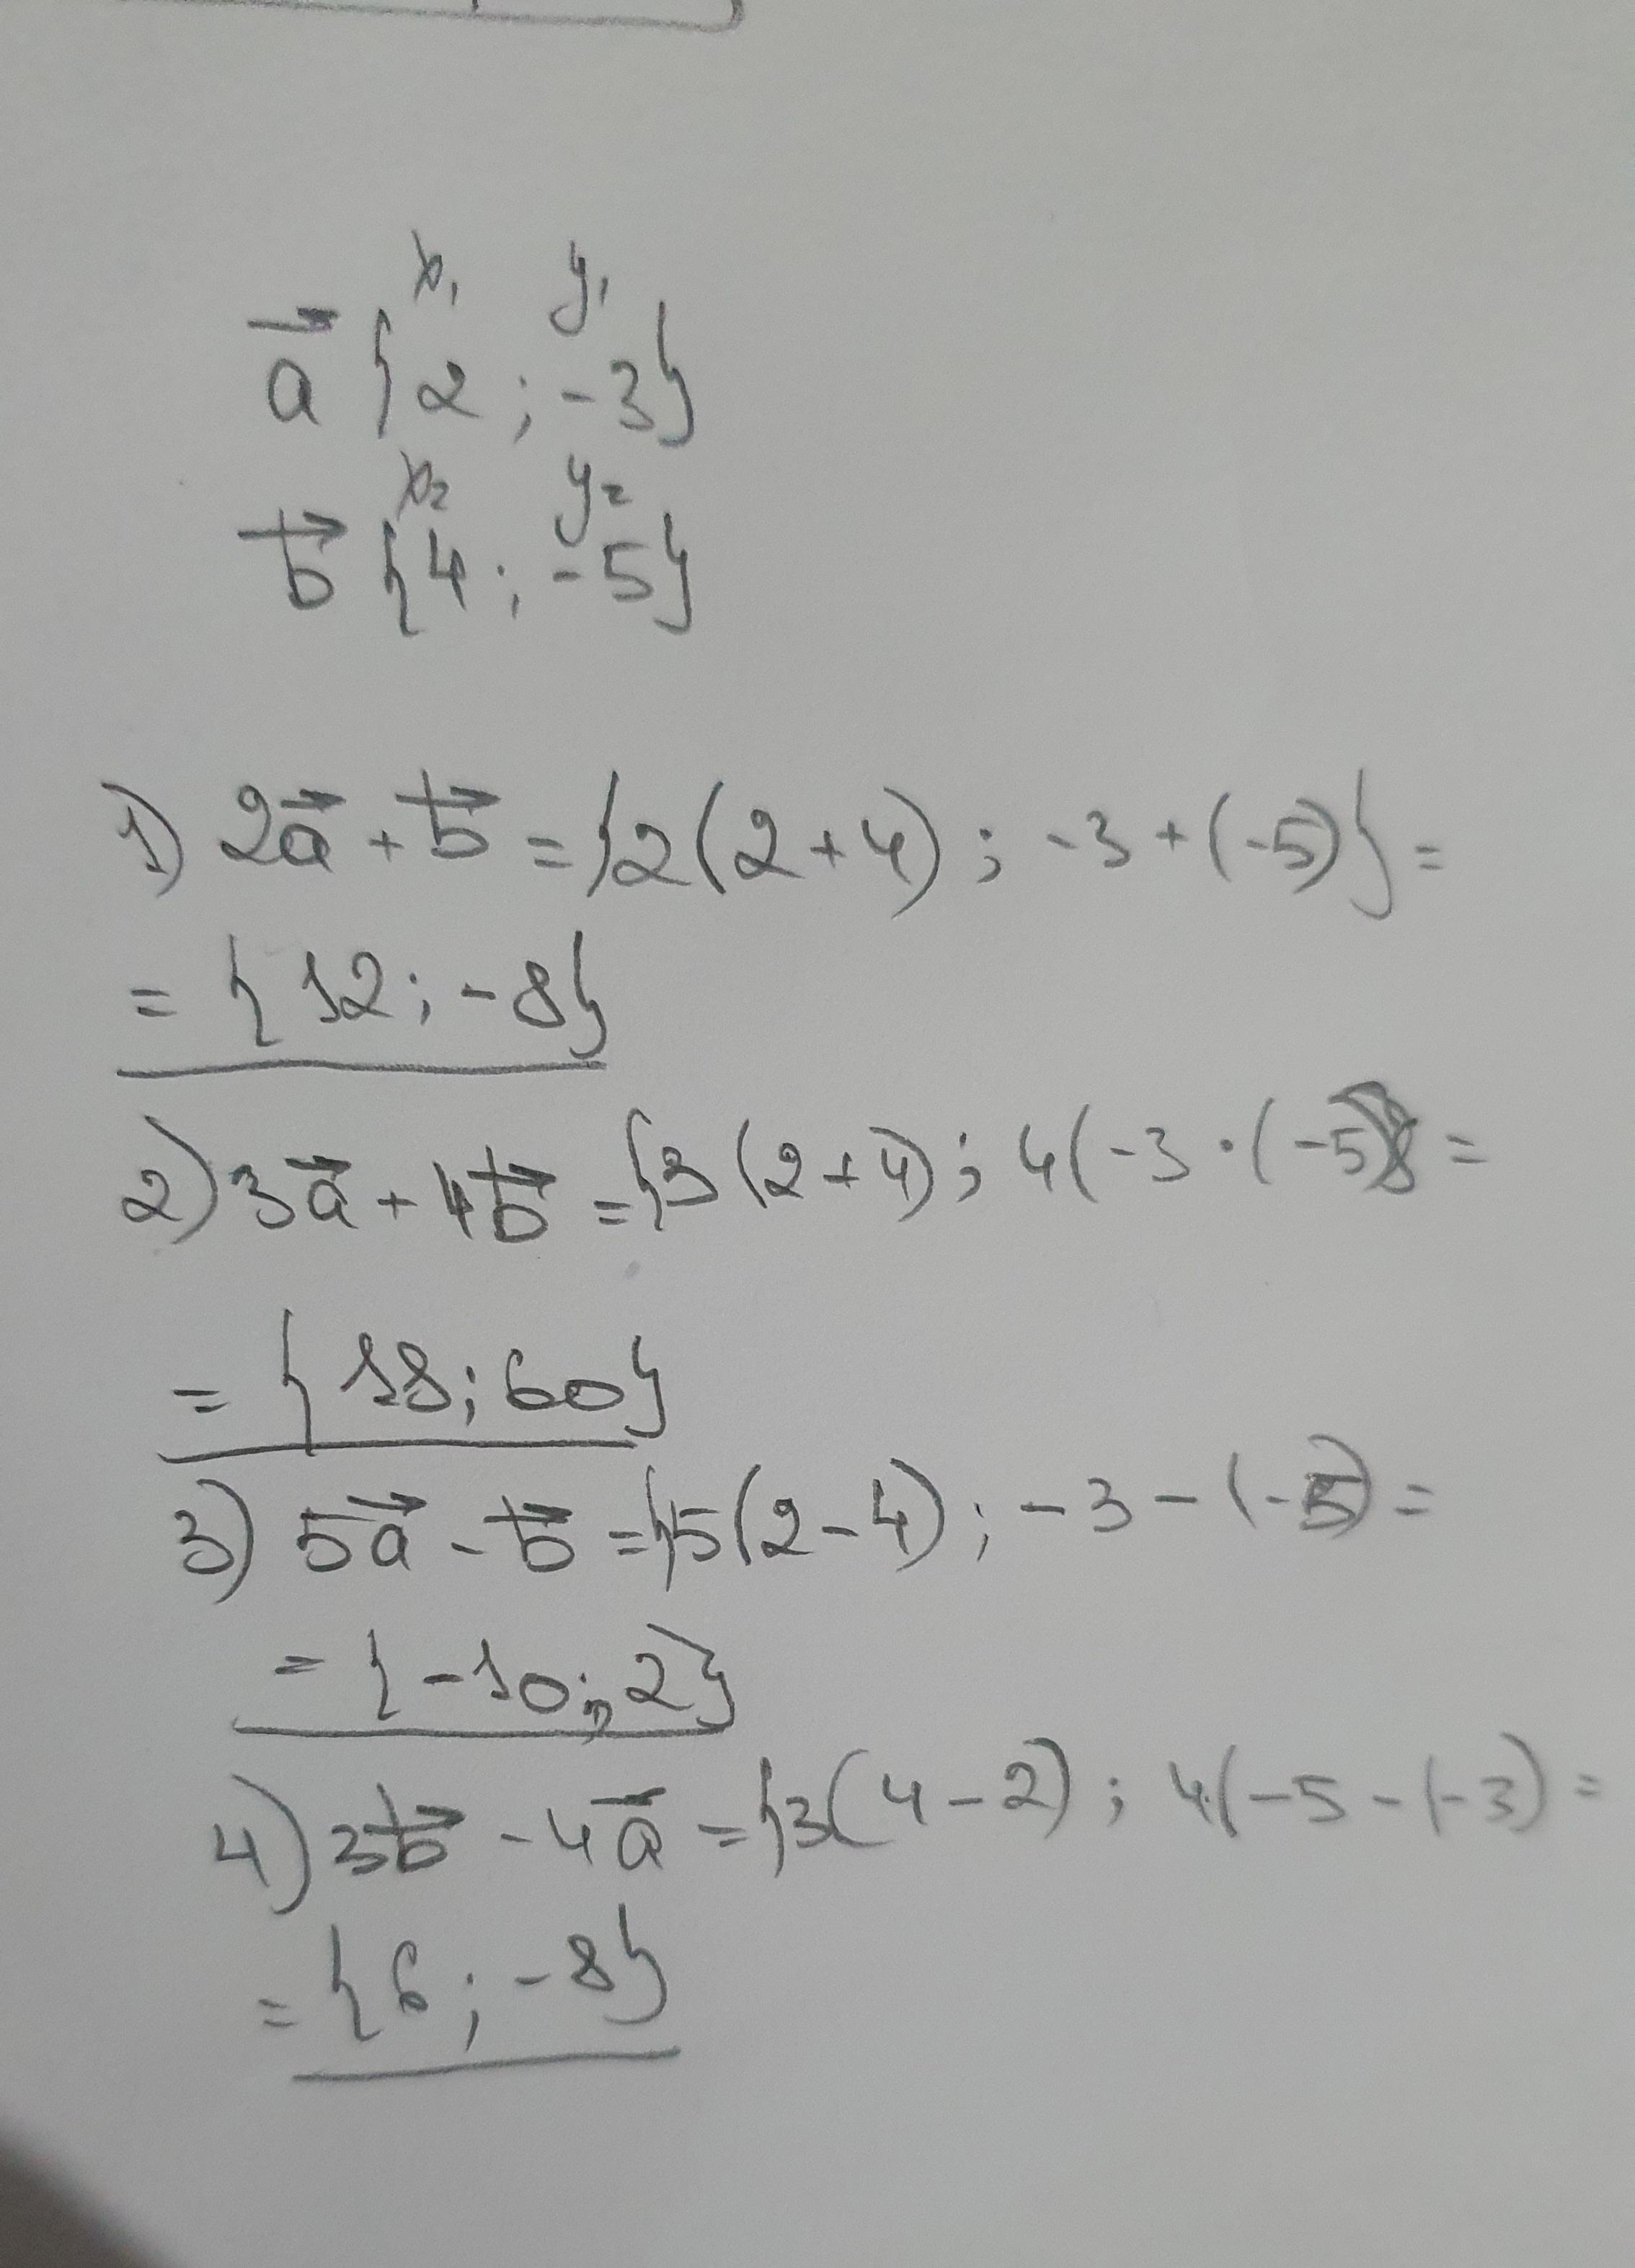 x₁ y₁
a⃗ {2 ; -3}
x₂ y₂
b⃗ {4 ; -5}
1) 2a⃗ + b⃗ = {2(2+4) ; -3+(-5)} =
= {12 ; -8}
2) 3a⃗ + 4b⃗ = {3(2+4) ; 4(-3·(-5)} =
= {18 ; 60}
3) 5a⃗ - b⃗ = {5(2-4) ; -3-(-5) =
= {-10 ; 2}
4) 3b⃗ - 4a⃗ = {3(4-2) ; 4(-5-(-3) =
= {6 ; -8}